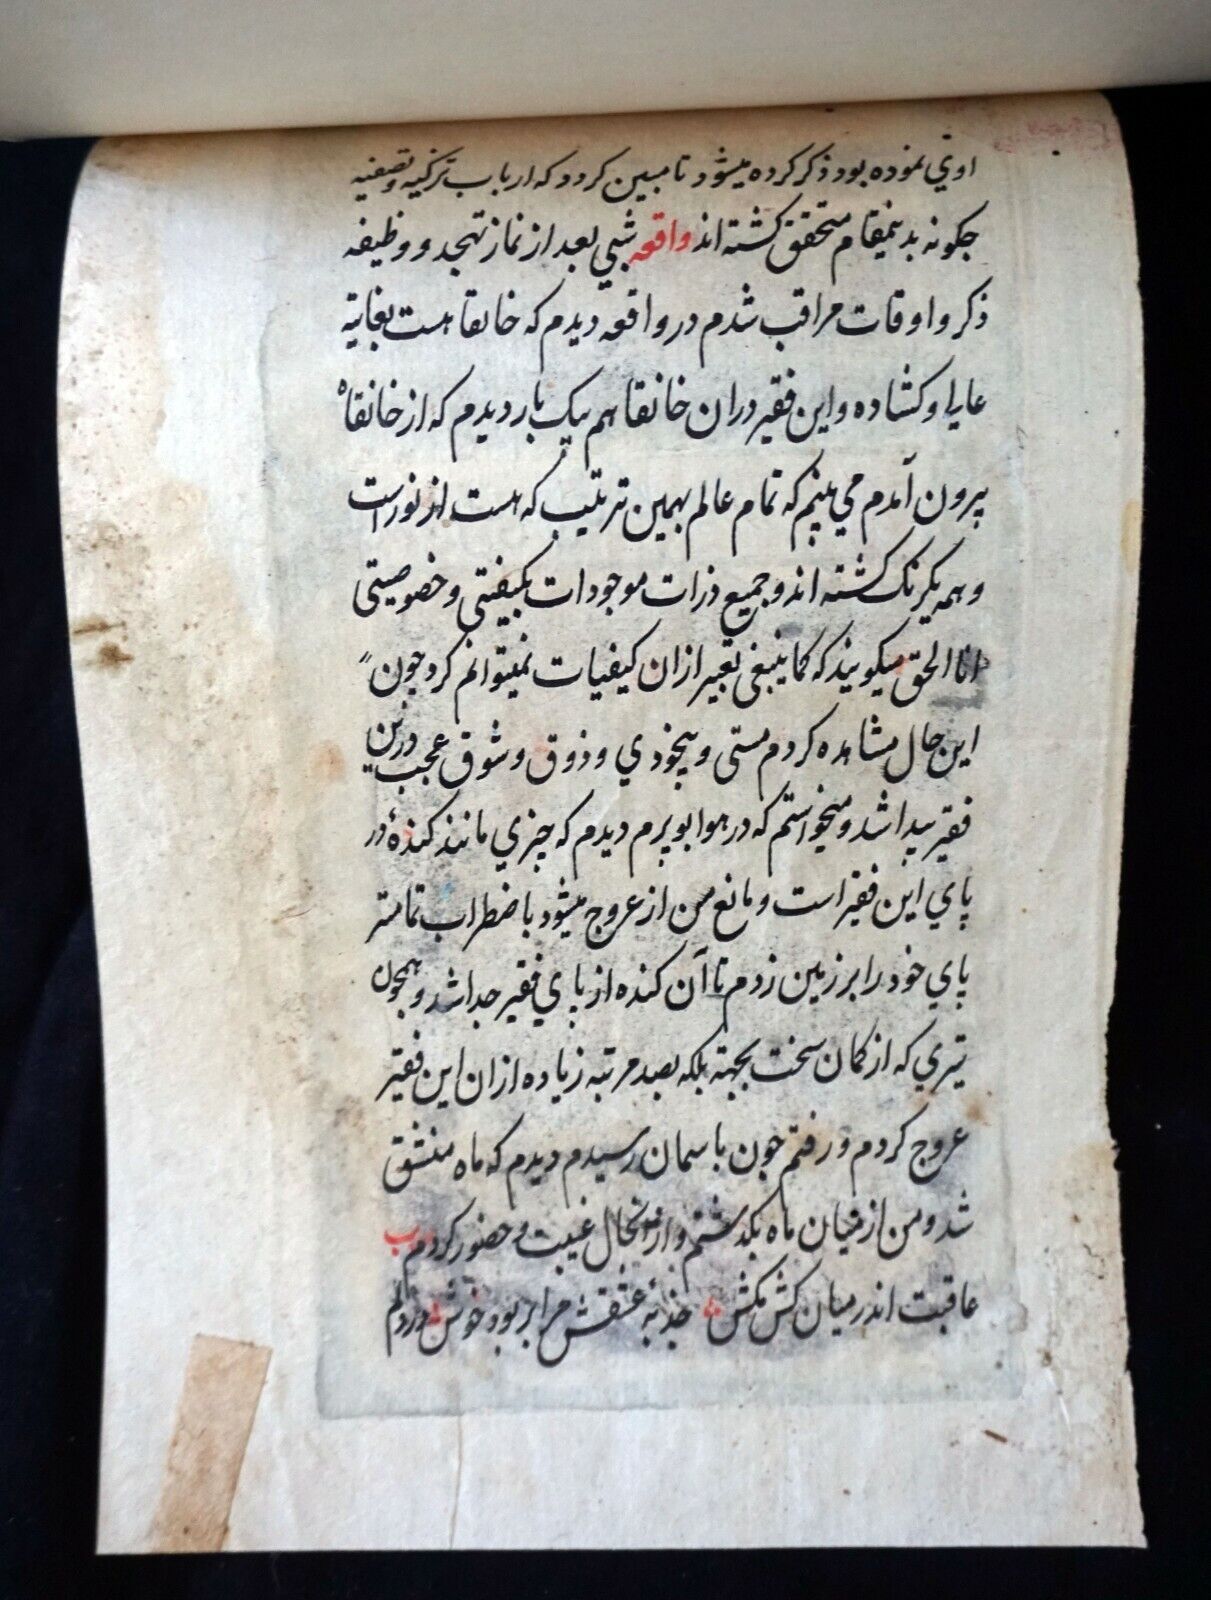 اوتي نموده بود ذكر كرده ميشود تا مبين كردد كه ارباب تزكيه و تصفيه
چكونه بدينمقام متحقق كشته اند واقعه شبي بعد از نماز تهجد و وظيفه
ذكر و اوقات مراقب شدم در واقعه ديدم كه خانقا هست بغايته
عالي و كشاده و اين فقير دران خانقاهم بيكبار ديدم كه از خانقاه
بيرون آمدم مي بينم كه تمام عالم بهمين ترتيب كه هست از نور است
و همه يكرنك كشته اند و جميع ذرات موجودات بكيفيتي و خصوصيتي
انا الحق ميكويند كه كما ينبغي تعبير ازان كيفيات نميتوانم كرد چون
اين حال مشاهده كردم مستي و بيخودي و ذوق و شوق عجب درين
فقير پيدا شد و ميخواستم كه در هوا بپرم ديدم كه چيزي مانند كنده در
پاي اين فقير است و مانع من از عروج ميشود باضطراب تمامتر
پاي خود را بر زمين زدم تا آن كنده از پاي فقير جدا شد و همچون
تيري كه از كمان سخت بجهد بلكه بصد مرتبه زياده ازان اين فقير
عروج كردم و رفتم چون باسمان رسيدم ديدم كه ماه منشق
شد و من از ميان ماه بكذشتم و از انحال غيبت و حضور كردم ب
عاقبت اندر ميان كش مكش جذبه عشقش مرا بربود خوش